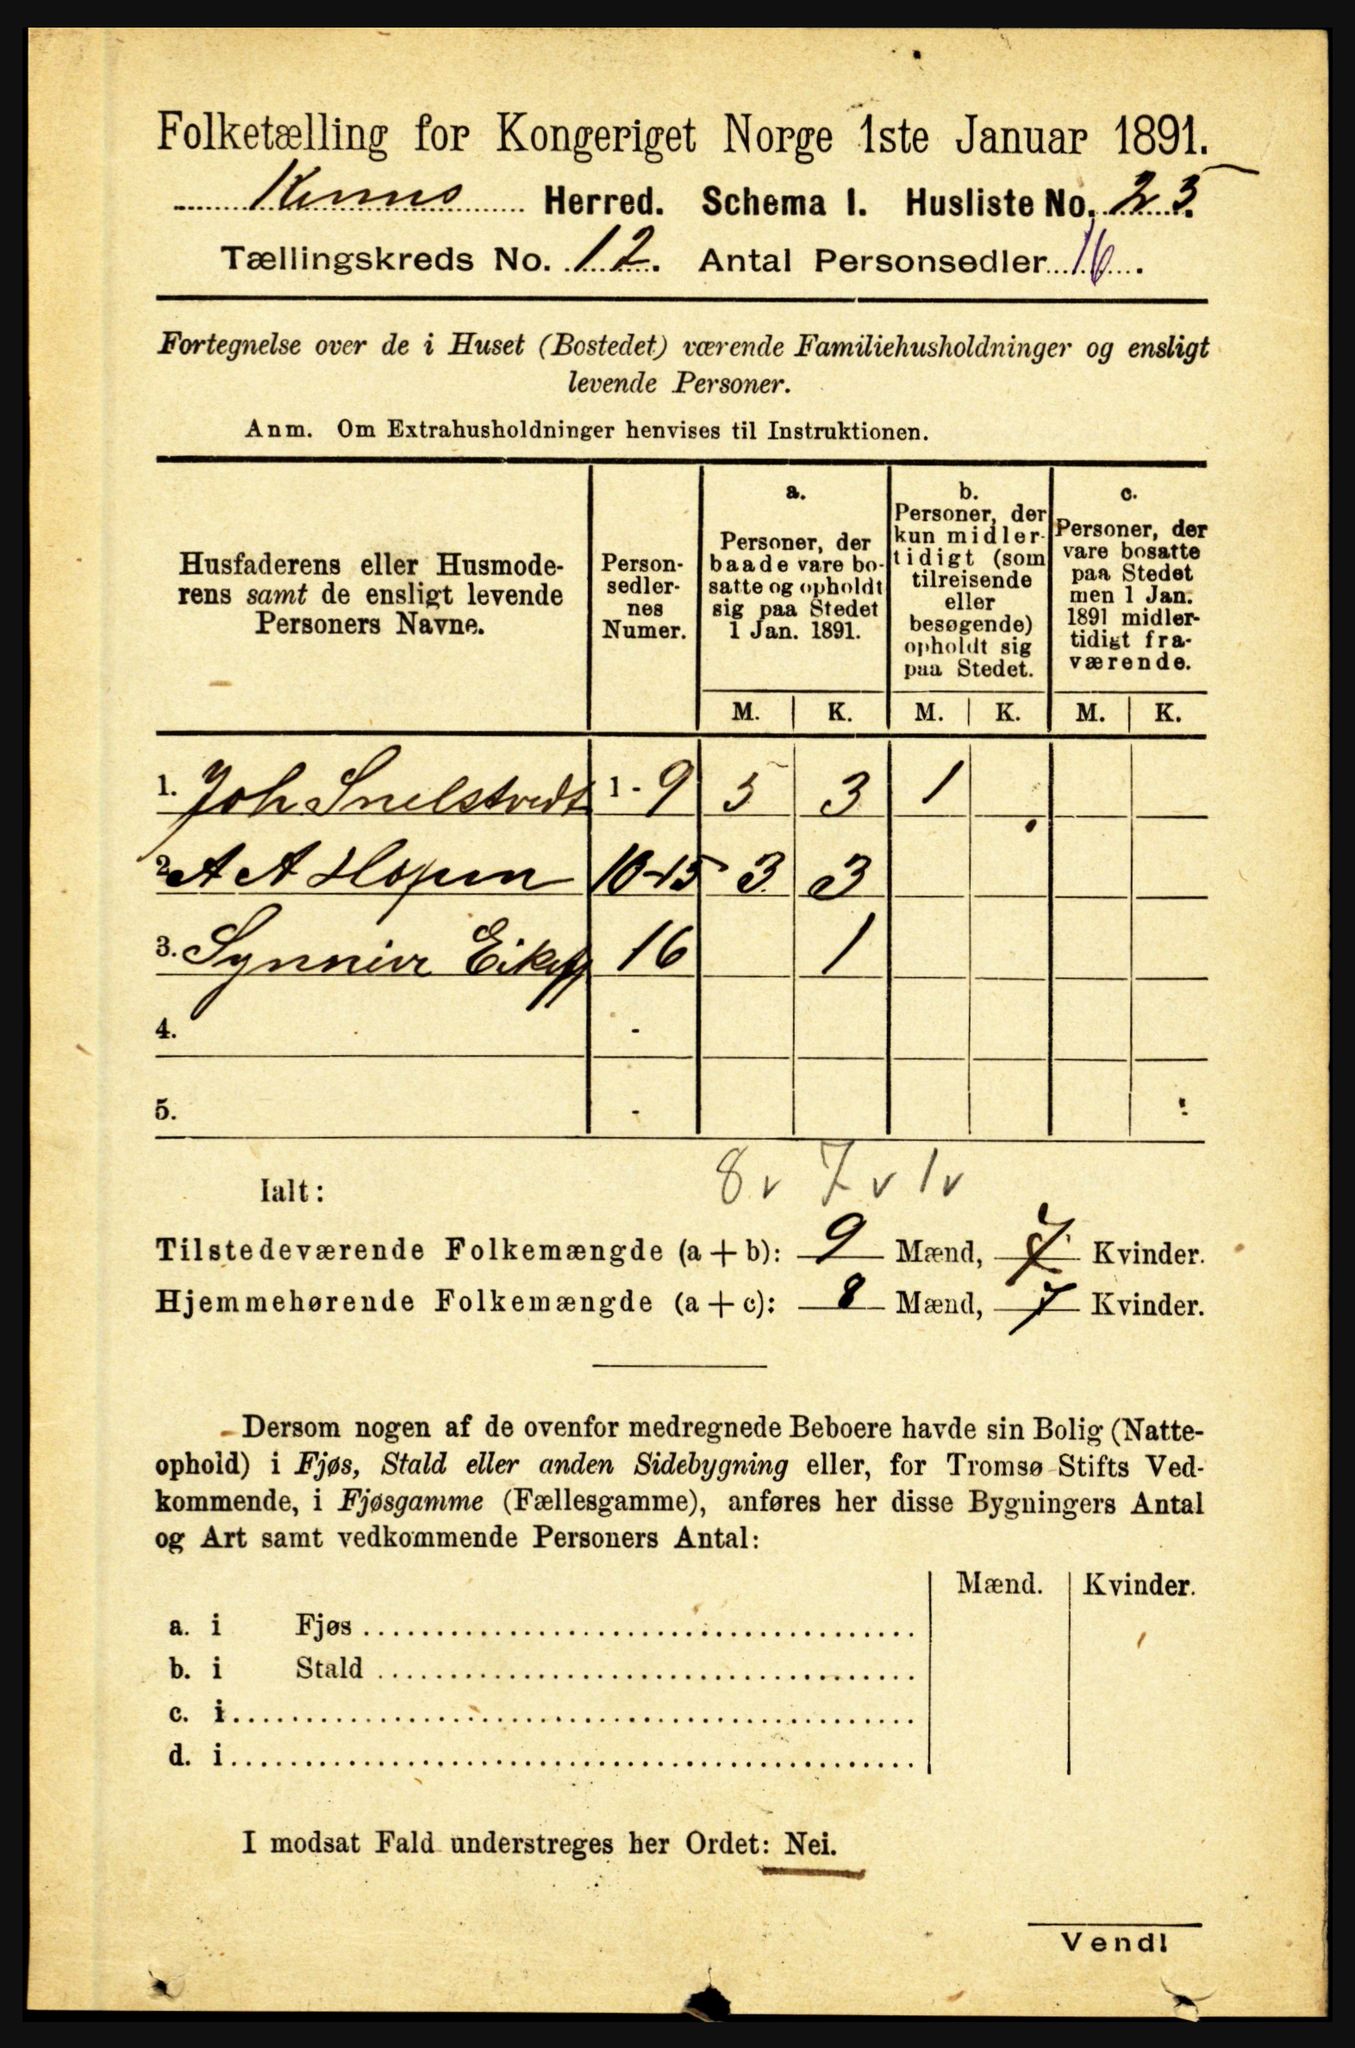 Folketælling for Kongeriget Norge 1ste Januar 1891.
Kinns Herred. Schema I. Husliste No. 25.
Tællingskreds No. 12. Antal Personsedler 16.
Fortegnelse over de i Huset (Bostedet) værende Familiehusholdninger og ensligt
levende Personer.
Anm. Om Extrahusholdninger henvises til Instruktionen.
Husfaderens eller Husmode-
rens samt de ensligt levende
Personers Navne.
Person-
sedler-
nes
Numer.
a.
Personer, der
baade vare bo-
satte og opholdt
sig paa Stedet
1 Jan. 1891.
b.
Personer, der
kun midler-
tidigt (som
tilreisende
eller
besøgende)
opholdt sig
paa Stedet.
c.
Personer, der
vare bosatte
paa Stedet
men 1 Jan.
1891 midler-
tidigt fra-
værende.
M. K. M. K. M. K.
1. Joh Snelstvedt 1 - 9 5 3 1
2. A A Hopen 10-15 3 3
3. Synnive 16 1
4. -
5. -
8 v 7 v 1 v
Ialt:
Tilstedeværende Folkemængde (a + b): 9 Mænd, 7 Kvinder.
Hjemmehørende Folkemængde (a + c): 8 Mænd, 7 Kvinder.
Dersom nogen af de ovenfor medregnede Beboere havde sin Bolig (Natte-
ophold) i Fjøs, Stald eller anden Sidebygning eller, for Tromsø Stifts Ved-
kommende, i Fjøsgamme (Fællesgamme), anføres her disse Bygningers Antal
og Art samt vedkommende Personers Antal:
Mænd. Kvinder.
a. i Fjøs
b. i Stald
c. i
d. i
I modsat Fald understreges her Ordet: Nei.
Vend!